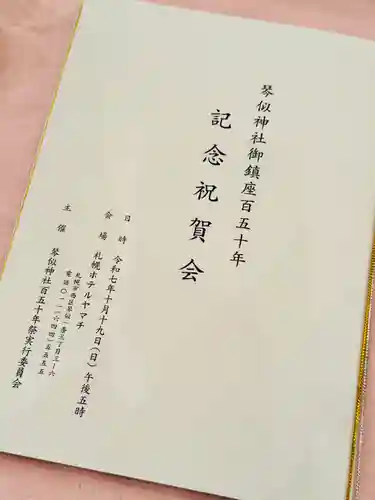 琴似神社御鎮座百五十年
記念祝賀会
日時 令和七年十月十九日(日)午後五時
会場 札幌ホテルヤマチ
札幌市西区琴似一条三丁目三ー六
電話〇一一ー六四四ー五五五五
主催 琴似神社百五十年祭実行委員会